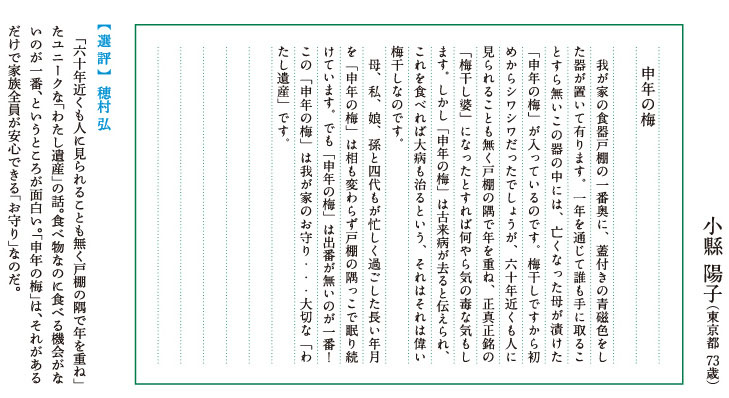 小縣 陽子(東京都 73歳)
申年の梅
我が家の食器戸棚の一番奥に、蓋付きの青磁色をし
た器が置いて有ります。一年を通じて誰も手に取るこ
とすら無いこの器の中には、亡くなった母が漬けた
「申年の梅」が入っているのです。梅干しですから初
めからシワシワだったでしょうが、六十年近くも人に
見られることも無く戸棚の隅で年を重ね、正真正銘の
「梅干し婆」になったとすれば何やら気の毒な気もし
ます。しかし「申年の梅」は古来病が去ると伝えられ、
これを食べれば大病も治るという、それはそれは偉い
梅干しなのです。
母、私、娘、孫と四代もが忙しく過ごした長い年月
を「申年の梅」は相も変わらず戸棚の隅っこで眠り続
けています。でも「申年の梅」は出番が無いのが一番!
この「申年の梅」は我が家のお守り・・・大切な「わ
たし遺産」です。
【選評】 穂村 弘
「六十年近くも人に見られることも無く戸棚の隅で年を重ね」
たユニークな「わたし遺産」の話。食べ物なのに食べる機会がな
いのが一番、というところが面白い。「申年の梅」は、それがある
だけで家族全員が安心できる「お守り」なのだ。